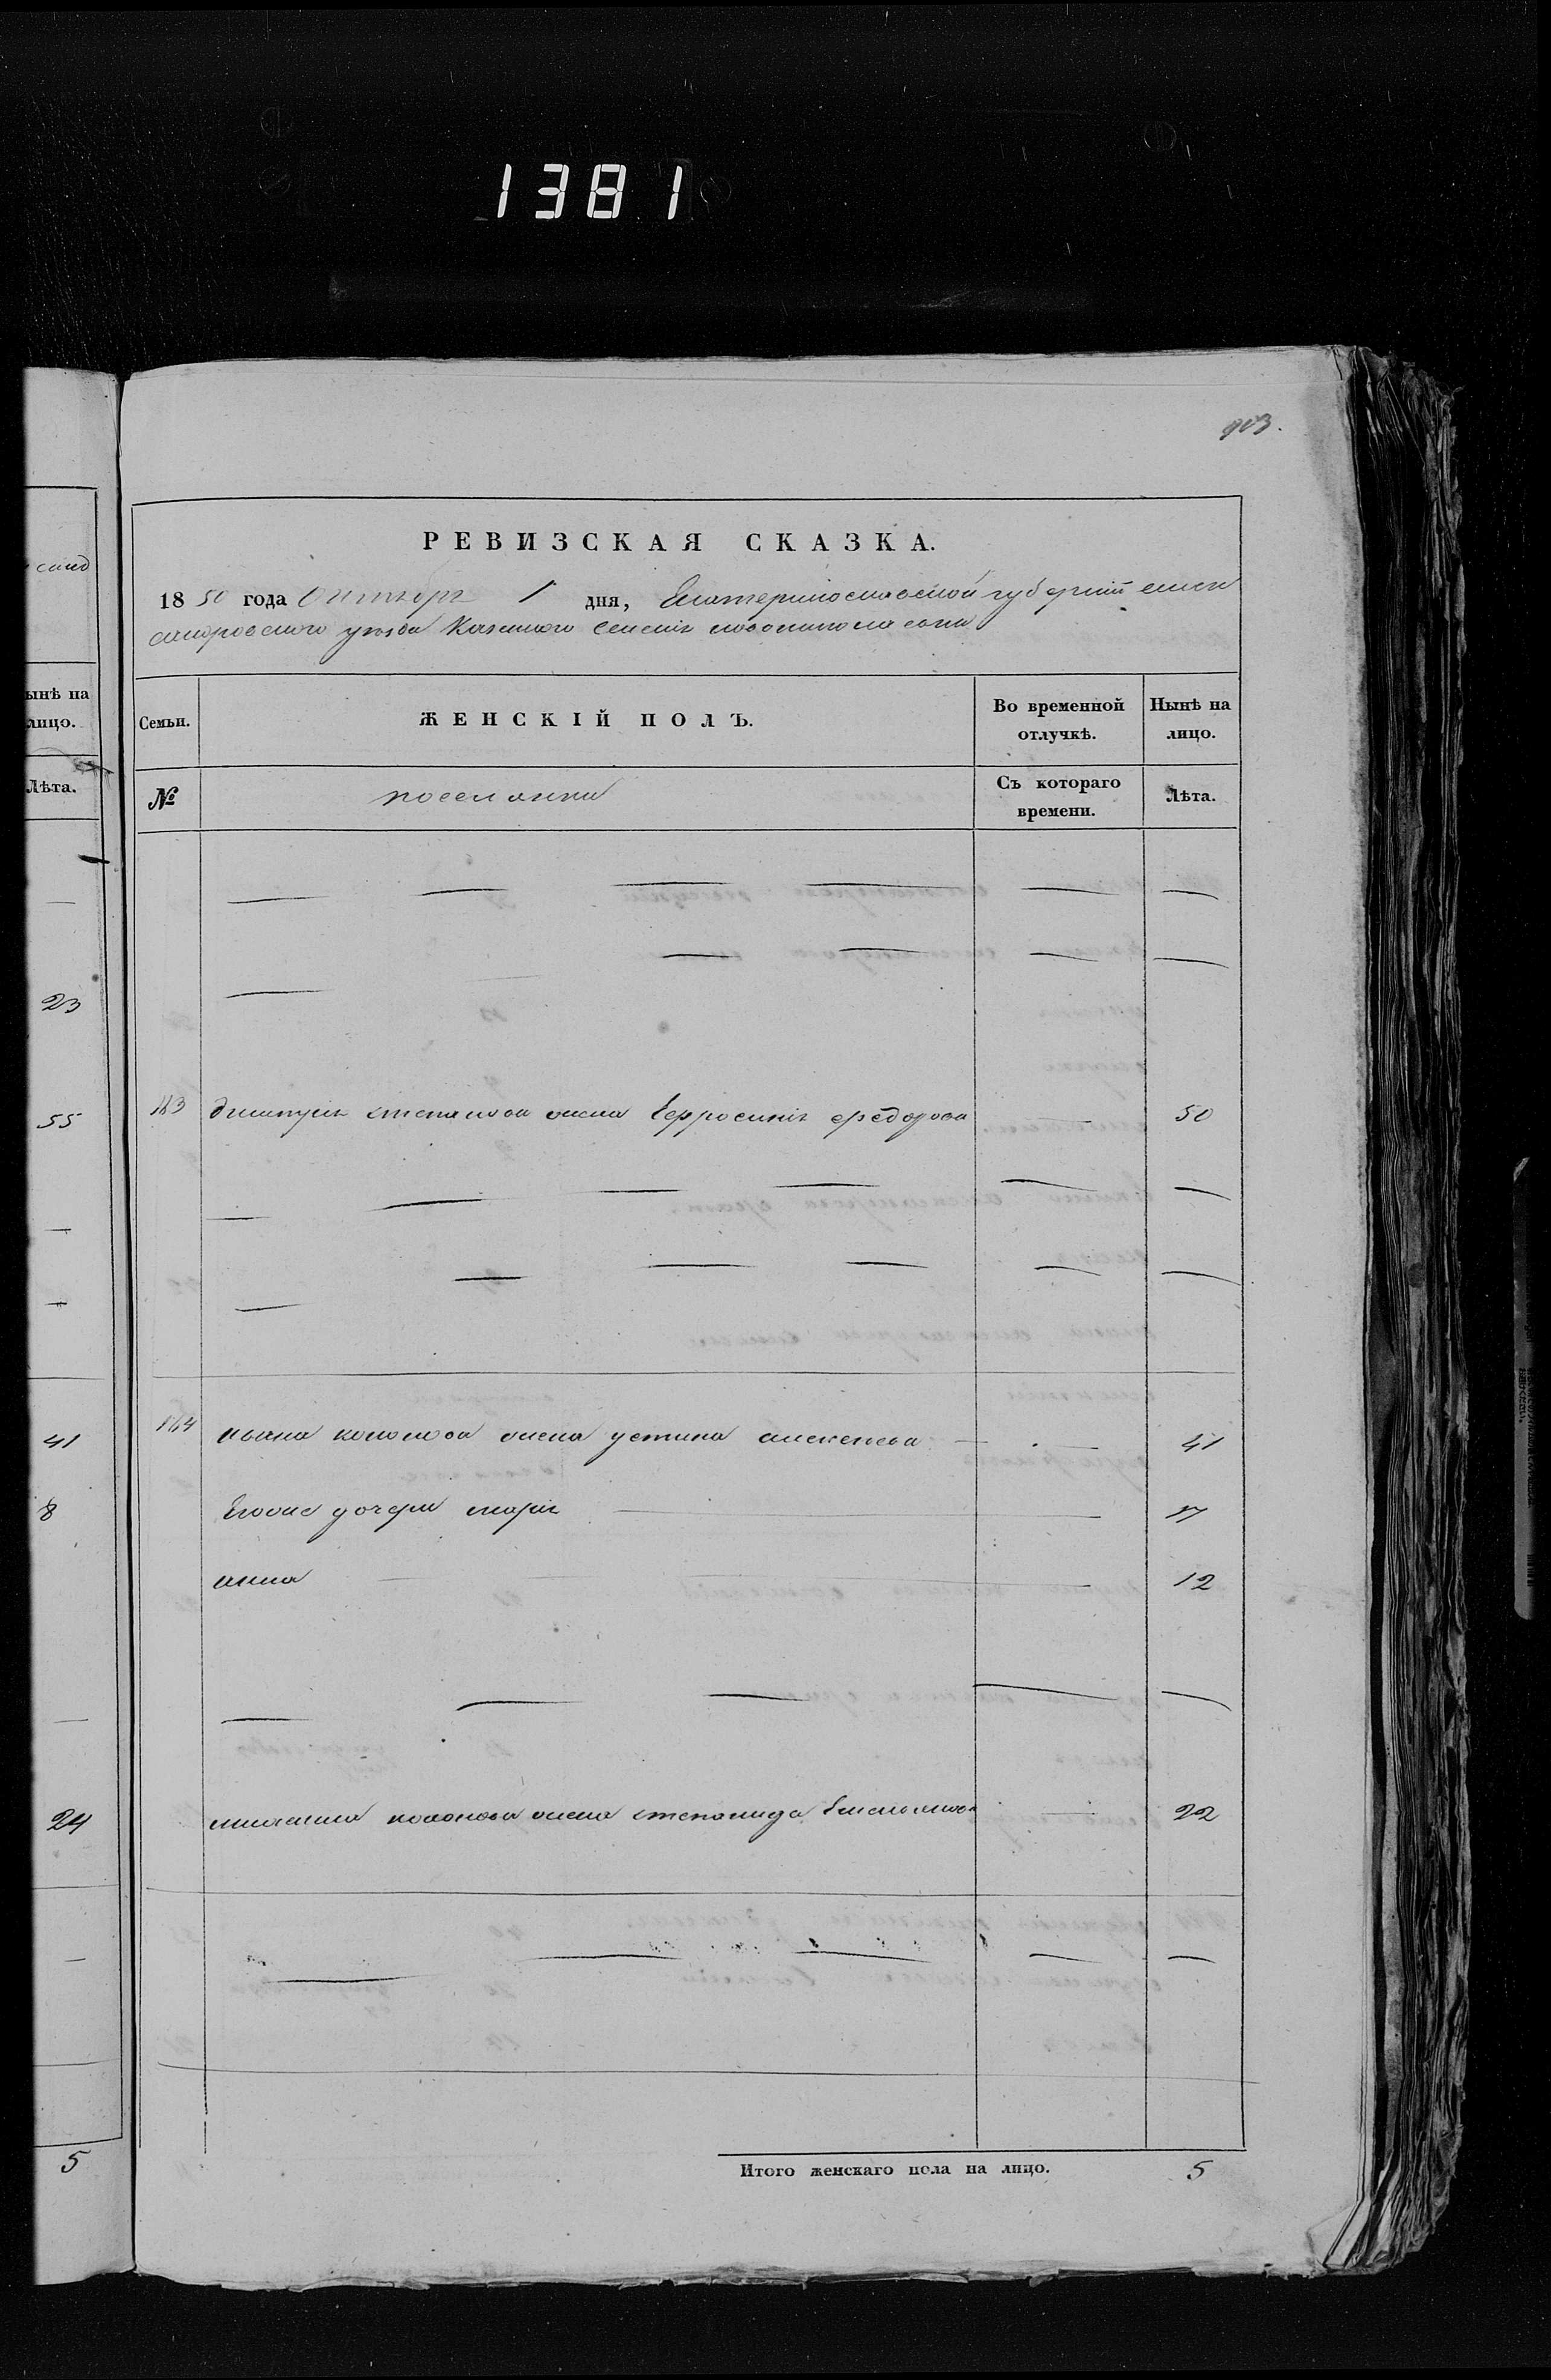 1381
903.
РЕВИЗСКАЯ СКАЗКА.
1850 года Октября 1 дня, Екатеринославской губернии Алек
сандровского уезда Казенного Селения
Семьи.
ЖЕНСКІЙ ПОЛЪ.
Во временной отлучкѣ.
Нынѣ на лицо.
№
поселянки
Съ котораго времени.
Лѣта.
183 степанова жена Ефросиния Федорова 50
184 ивана кононова жена устина алексеева 41
Его дочери мария 17
анна 12
кононова жена степанида 22
Итого женскаго пола на лицо. 5
ынѣ на
лицо.
Лѣта.
23
55
41
8
24
5